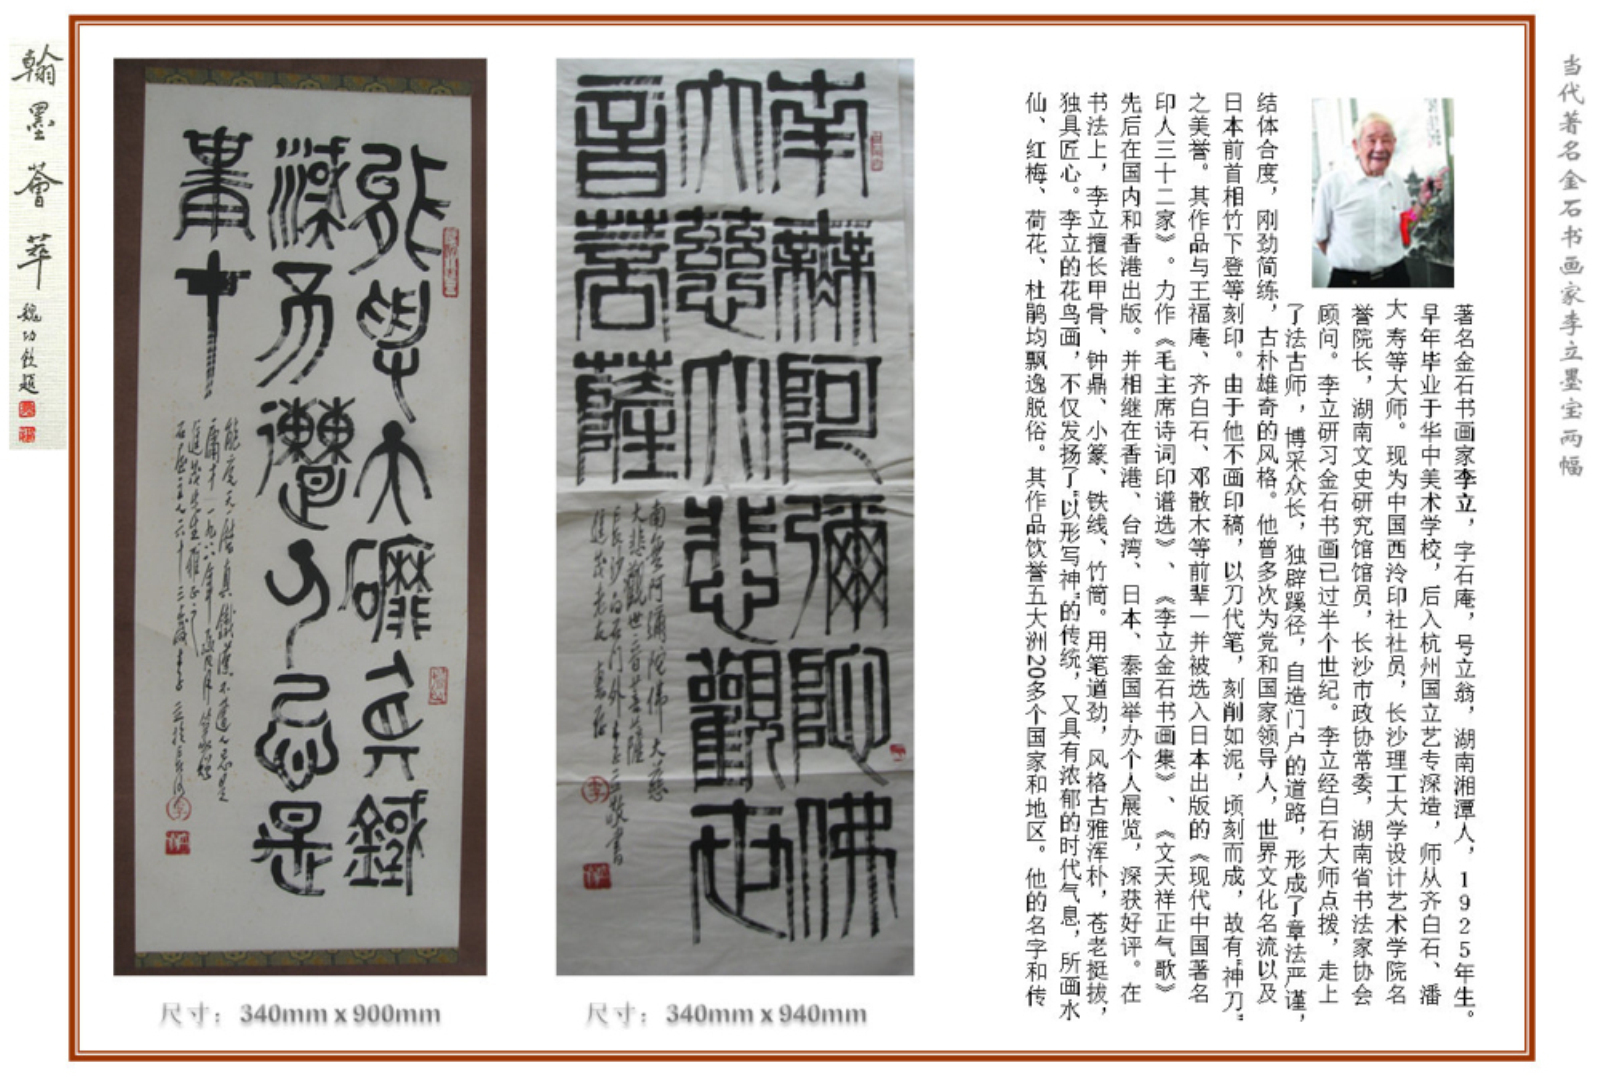 当代著名金石书画家李立墨宝两幅
著名金石书画家李立，字石庵，号立翁，湖南湘潭人，1925年生。
早年毕业于华中美术学校，后入杭州国立艺专深造，师从齐白石、潘
大寿等大师。现为中国西泠印社社员，长沙理工大学设计艺术学院名
誉院长，湖南文史研究馆馆员，长沙市政协常委，湖南省书法家协会
顾问。李立研习金石书画已过半个世纪。李立经白石大师点拨，走上
了法古师，博采众长，独辟蹊径，自造门户的道路，形成了章法严谨，
结体合度，刚劲简练，古朴雄奇的风格。他曾多次为党和国家领导人，世界文化名流以及
日本前首相竹下登等刻印。由于他不画印稿，以刀代笔，刻削如泥，顷刻而成，故有"神刀"
之美誉。其作品与王福庵、齐白石、邓散木等前辈一并被选入日本出版的《现代中国著名
印人三十二家》。力作《毛主席诗词印谱选》、《李立金石书画集》、《文天祥正气歌》
先后在国内和香港出版。并相继在香港、台湾、日本、泰国举办个人展览，深获好评。在
书法上，李立擅长甲骨、钟鼎、小篆、铁线、竹简。用笔遒劲，风格古雅浑朴，苍老挺拔，
独具匠心。李立的花鸟画，不仅发扬了"以形写神"的传统，又具有浓郁的时代气息，所画水
仙、红梅、荷花、杜鹃均飘逸脱俗。其作品饮誉五大洲20多个国家和地区。他的名字和传
南無阿彌陀佛
大慈大悲觀世
音菩薩
南無阿彌陀佛大慈
大悲觀世音菩薩
尺寸：340mm x 940mm
能受天磨真鐵
漢不遭人忌是
庸才
能受天磨真鐵漢不遭人忌是
尺寸：340mm x 900mm
翰墨薈萃